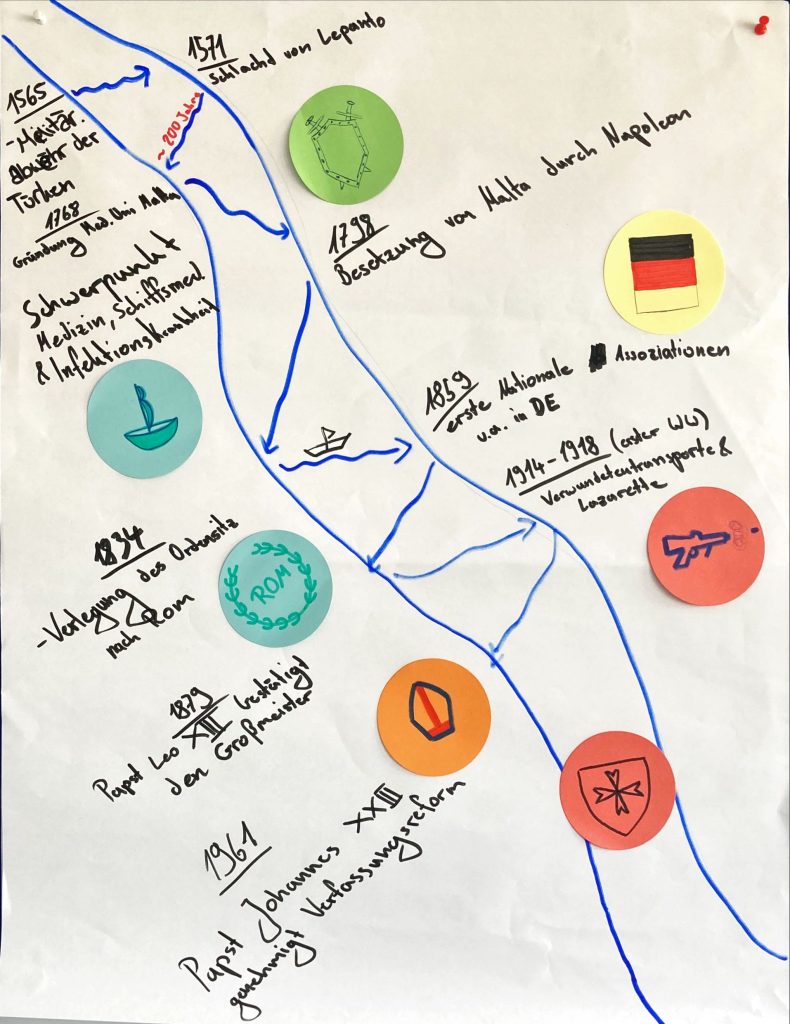 1565
- Militär.
abwehr der
Türken
1571
Schlacht von Lepanto
~ 200 Jahre
1768
Gründung Med. Uni Malta
Schwerpunkt
Medizin, Schiffsmed.
& Infektionskrankheit
1798
Besetzung von Malta durch Napoleon
1834
- Verlegung des Ordensitz
nach Rom
ROM
1859
erste Nationale Assoziationen
u.a. in DE
1879
Papst Leo XIII bestätigt
den Großmeister
1914-1918 (erster WW)
Verwundetentransporte &
Lazarette
1961
Papst Johannes XXIII
genehmigt Verfassungsreform